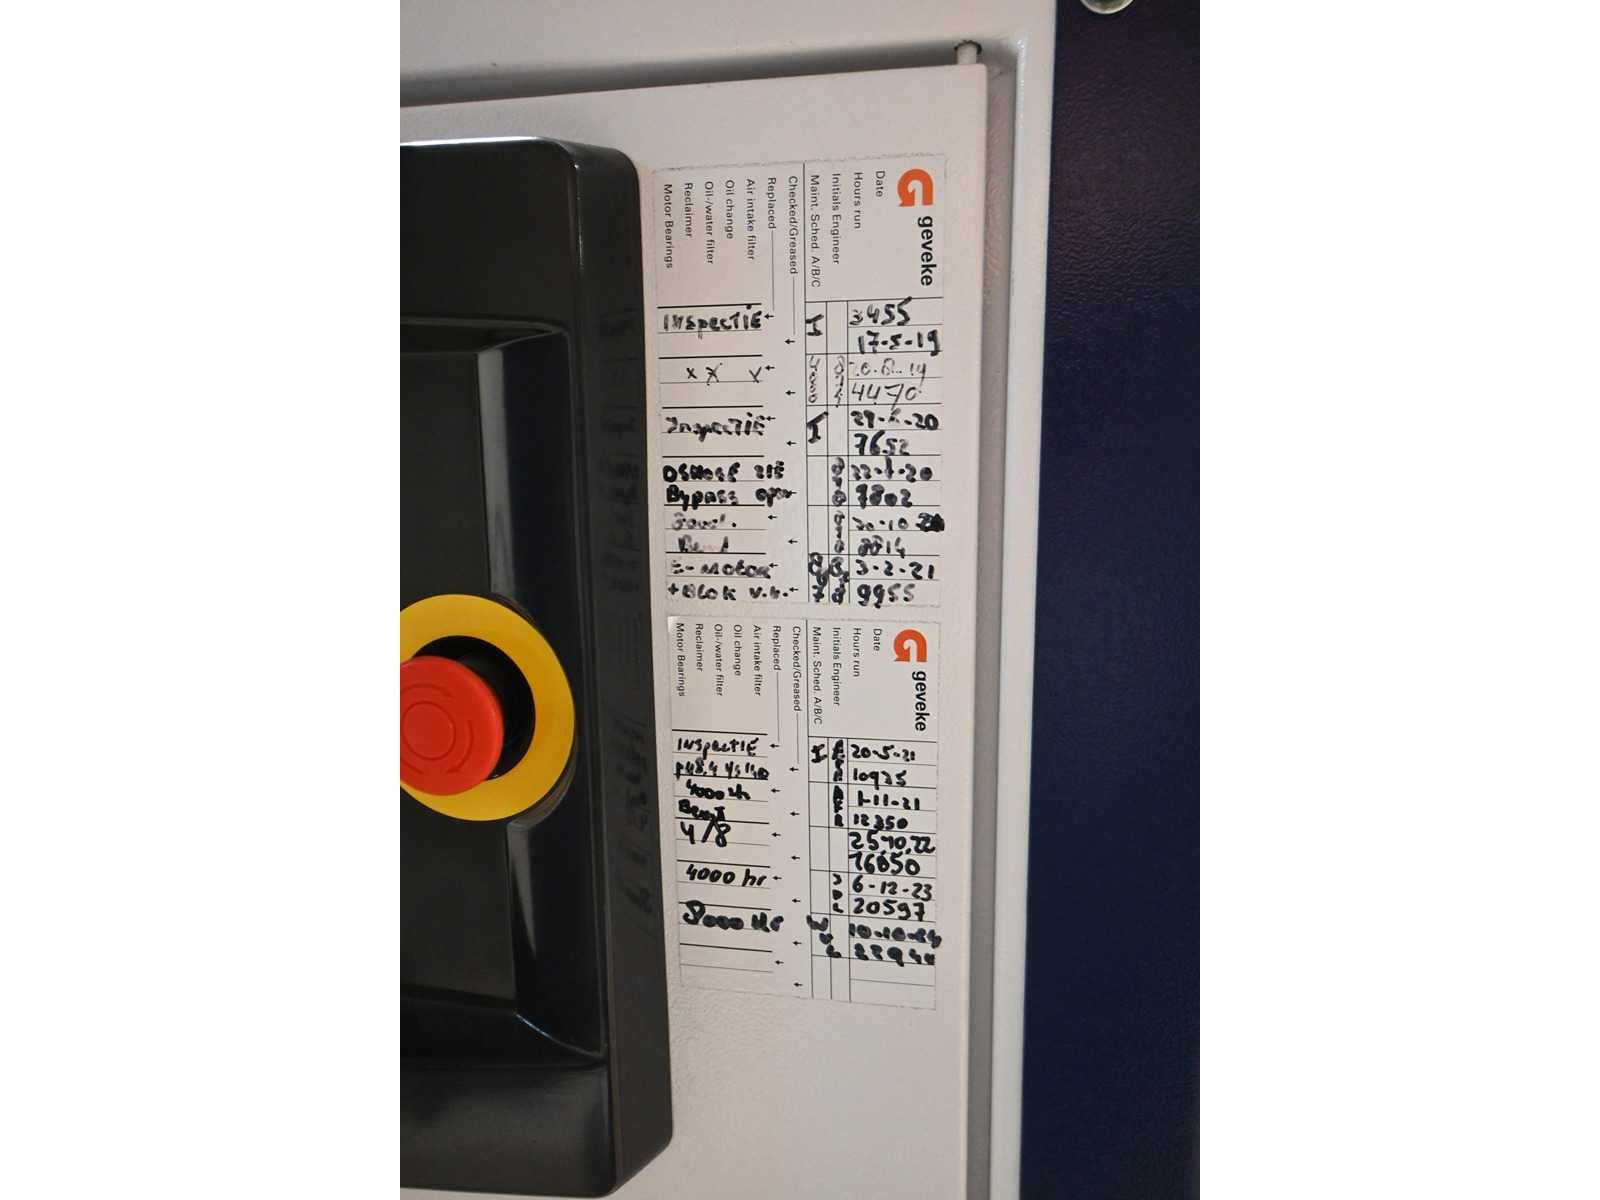 geveke
Date
Hours run
Initials Engineer
Maint. Sched. A/B/C
Checked/Greased
Replaced
Air intake filter
Oil change
Oil-/water filter
Reclaimer
Motor Bearings
3455
17-5-19
I
INSPECTIE
4470
x x x
-20
7652
I
Inspectie
-20
7802
Bypass
8814
3-2-21
9955
E-MOTOR
+BLOK
geveke
Date
Hours run
Initials Engineer
Maint. Sched. A/B/C
Checked/Greased
Replaced
Air intake filter
Oil change
Oil-/water filter
Reclaimer
Motor Bearings
20-5-21
10925
I
INSPECTIE
1-11-21
12350
4000 hr
25-10.22
16850
4/8
6-12-23
20597
4000 hr
8000 Hr